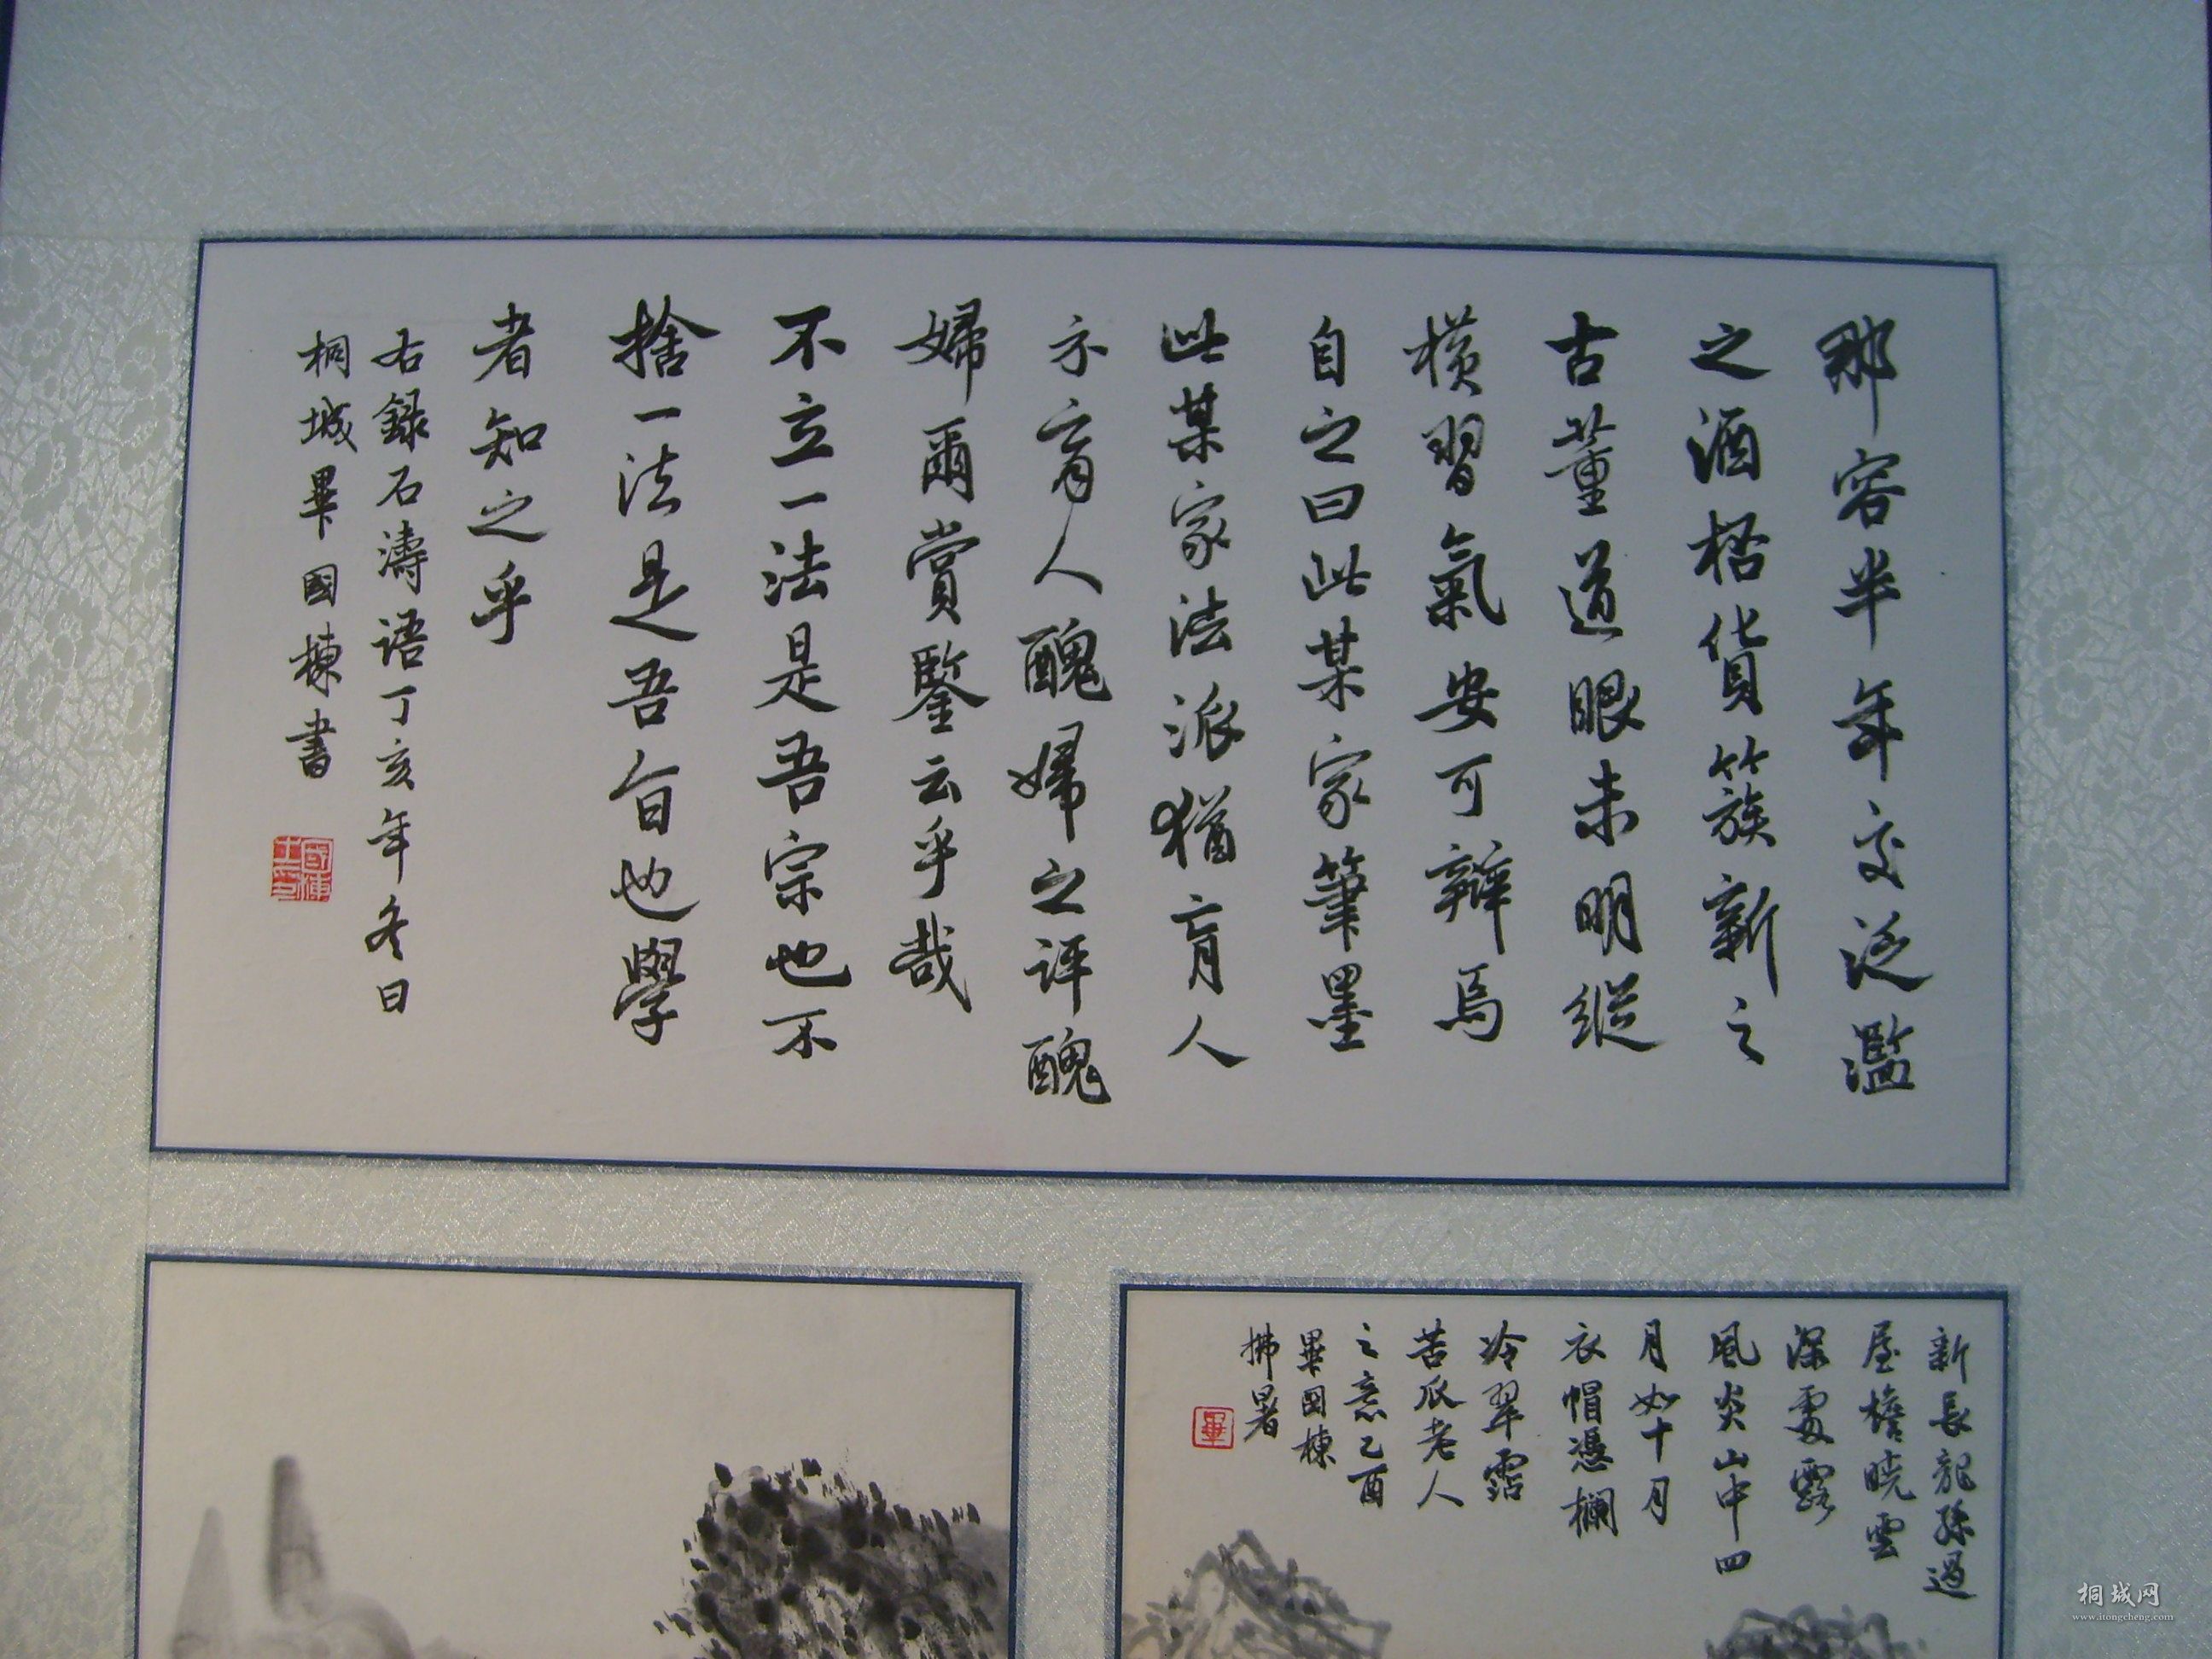 那容半年交泛濫
之酒榰貨簇新之
古董道眼未明縱
橫習氣安可辯焉
自之曰此某家筆墨
此某家法派猶盲人
示盲人醜婦之評醜
婦爾賞鑒云乎哉
不立一法是吾宗也不
捨一法是吾旨也學
者知之乎
右錄石濤語丁亥年冬日
桐城畢國棟書
新長龍孫過
屋檐曉雲
深處露
風炎山中四
月如十月
衣帽憑欄
冷翠霑
苦瓜老人
之意乙酉
畢國棟
拂暑
畢
桐城网
www.itongcheng.com